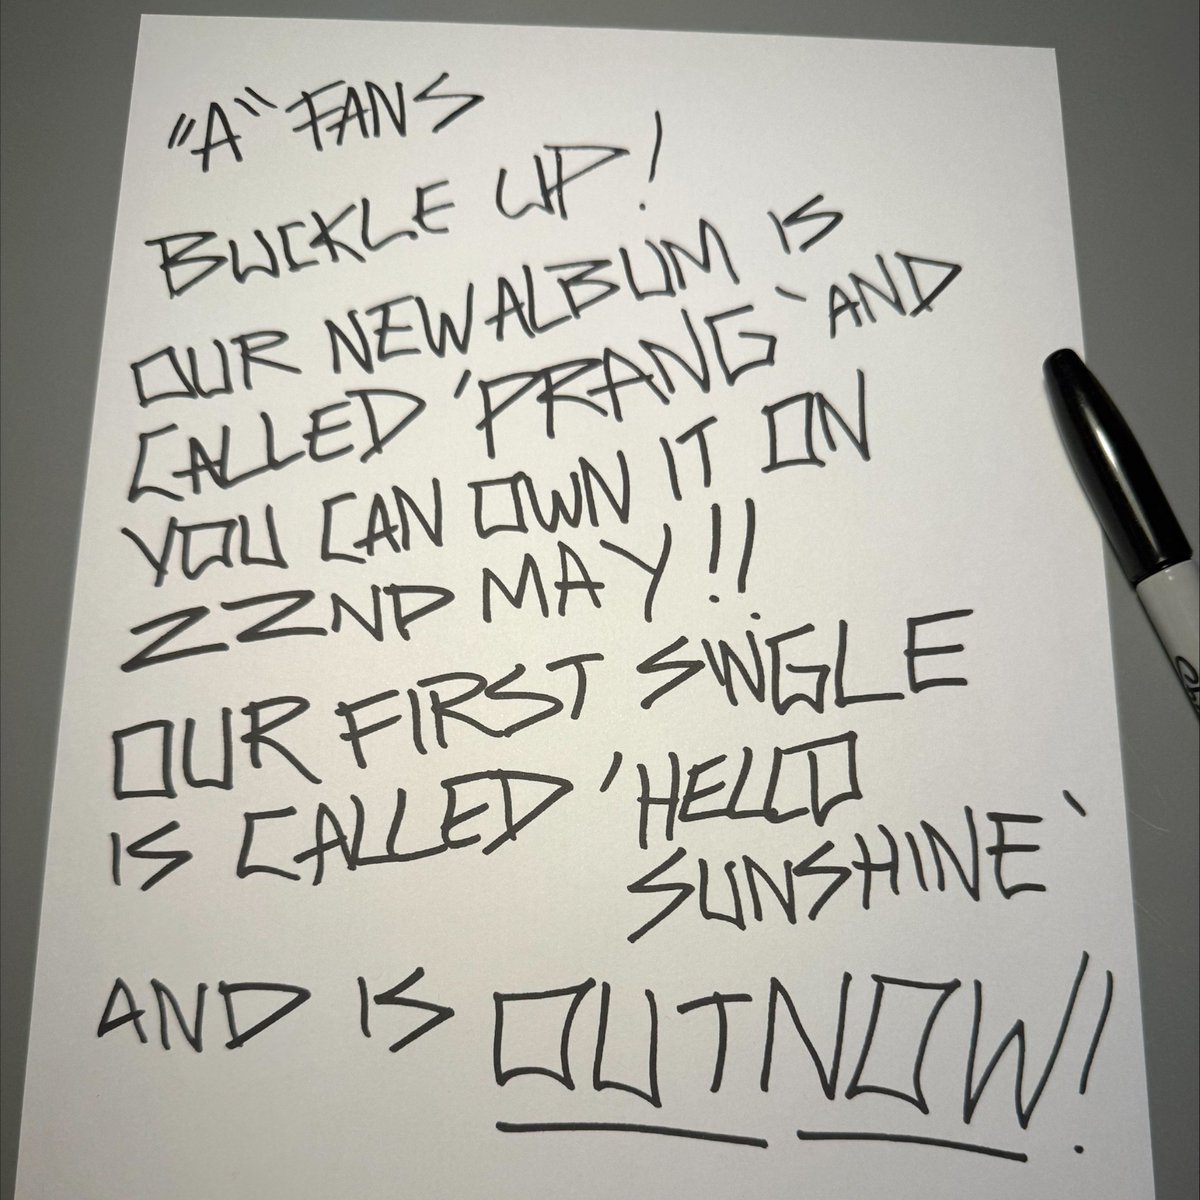 "A" FANS
BUCKLE UP!
OUR NEW ALBUM IS
CALLED 'PRANG' AND
YOU CAN OWN IT ON
22ND MAY!!
OUR FIRST SINGLE
IS CALLED 'HELLO
SUNSHINE'
AND IS OUT NOW!